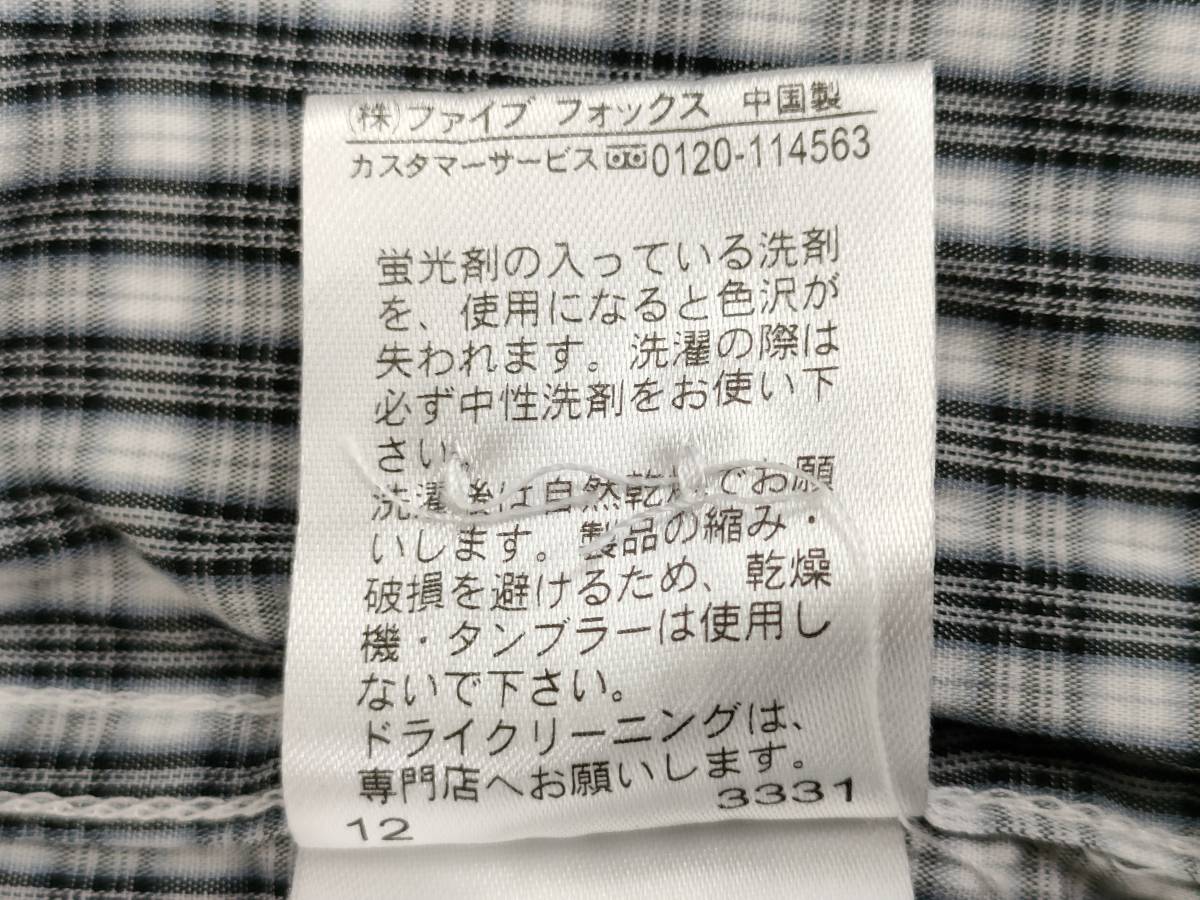 (株)ファイブ フォックス 中国製
カスタマーサービス 0120-114563
蛍光剤の入っている洗剤
を、使用になると色沢が
失われます。洗濯の際は
必ず中性洗剤をお使い下
さい。
洗濯後は自然乾燥でお願
いします。製品の縮み・
破損を避けるため、乾燥
機・タンブラーは使用し
ないで下さい。
ドライクリーニングは、
専門店へお願いします。
3331
12